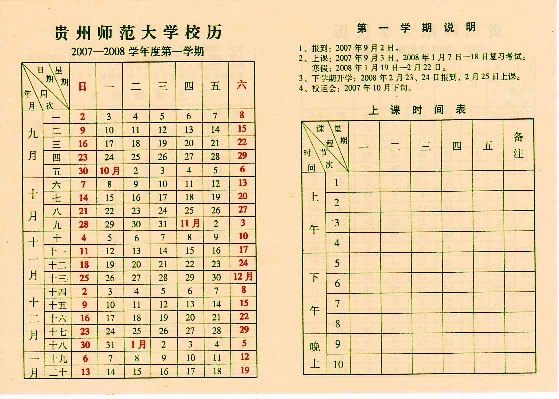 贵州师范大学校历
2007—2008 学年度第一学期
日 星
期 期
年 周
月 次
日 一 二 三 四 五 六
九月
一 2 3 4 5 6 7 8
二 9 10 11 12 13 14 15
三 16 17 18 19 20 21 22
四 23 24 25 26 27 28 29
五 30 10月 2 3 4 5 6
十月
六 7 8 9 10 11 12 13
七 14 15 16 17 18 19 20
八 21 22 23 24 25 26 27
九 28 29 30 31 11月 2 3
十一月
十 4 5 6 7 8 9 10
十一 11 12 13 14 15 16 17
十二 18 19 20 21 22 23 24
十三 25 26 27 28 29 30 12月
十二月
十四 2 3 4 5 6 7 8
十五 9 10 11 12 13 14 15
十六 16 17 18 19 20 21 22
十七 23 24 25 26 27 28 29
十八 30 31 1月 2 3 4 5
一月
十九 6 7 8 9 10 11 12
二十 13 14 15 16 17 18 19
第一学期说明
1、报到：2007年9月2日。
2、上课：2007年9月3日，2008年1月7日—18日复习考试。
寒假：2008年1月19日—2月22日。
3、下学期开学：2008年2月23、24日报到，2月25日上课。
4、校运会：2007年10月下旬。
上课时间表
课 星
程 期
时 节
间 次
一 二 三 四 五 备注
上午
1
2
3
4
下午
5
6
7
8
晚上
9
10